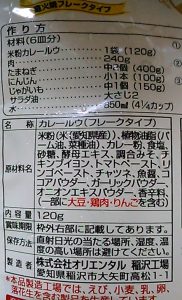 直火焼フレークタイプ
作り方
材料(6皿分)
米粉カレールウ 1袋(120g)
肉 240g
たまねぎ 中2個(400g)
にんじん 小1本(100g)
じゃがいも 中1個(150g)
サラダ油 大さじ2
水 850ml(4¼カップ)
名称 カレールウ(フレークタイプ)
原材料名 米粉(米(愛知県産))、植物油脂(パーム油、菜種油)、カレー粉、食塩、砂糖、酵母エキス、調合みそ、
トペースト、リンゴペースト、チャツネ、魚醤、ココアパウダー、ガーリックパウダー、オニオンエキスパウダー、香辛料、
(一部に大豆・鶏肉・りんごを含む)
内容量 120g
賞味期限 枠外右部に記載してあります。
保存方法 直射日光の当たる場所、湿度、温度の高い場所は避けてください。
製造者 株式会社オリエンタル 稲沢工場
愛知県稲沢市大矢町高松1-1
※本品製造工場では、えび、小麦、卵、乳、落花生を含む製品を生産しています。